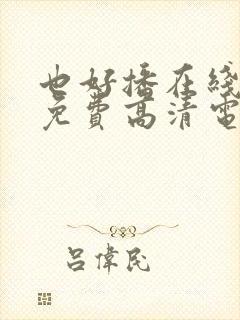 也好播在线
免费高清电
吕偉民